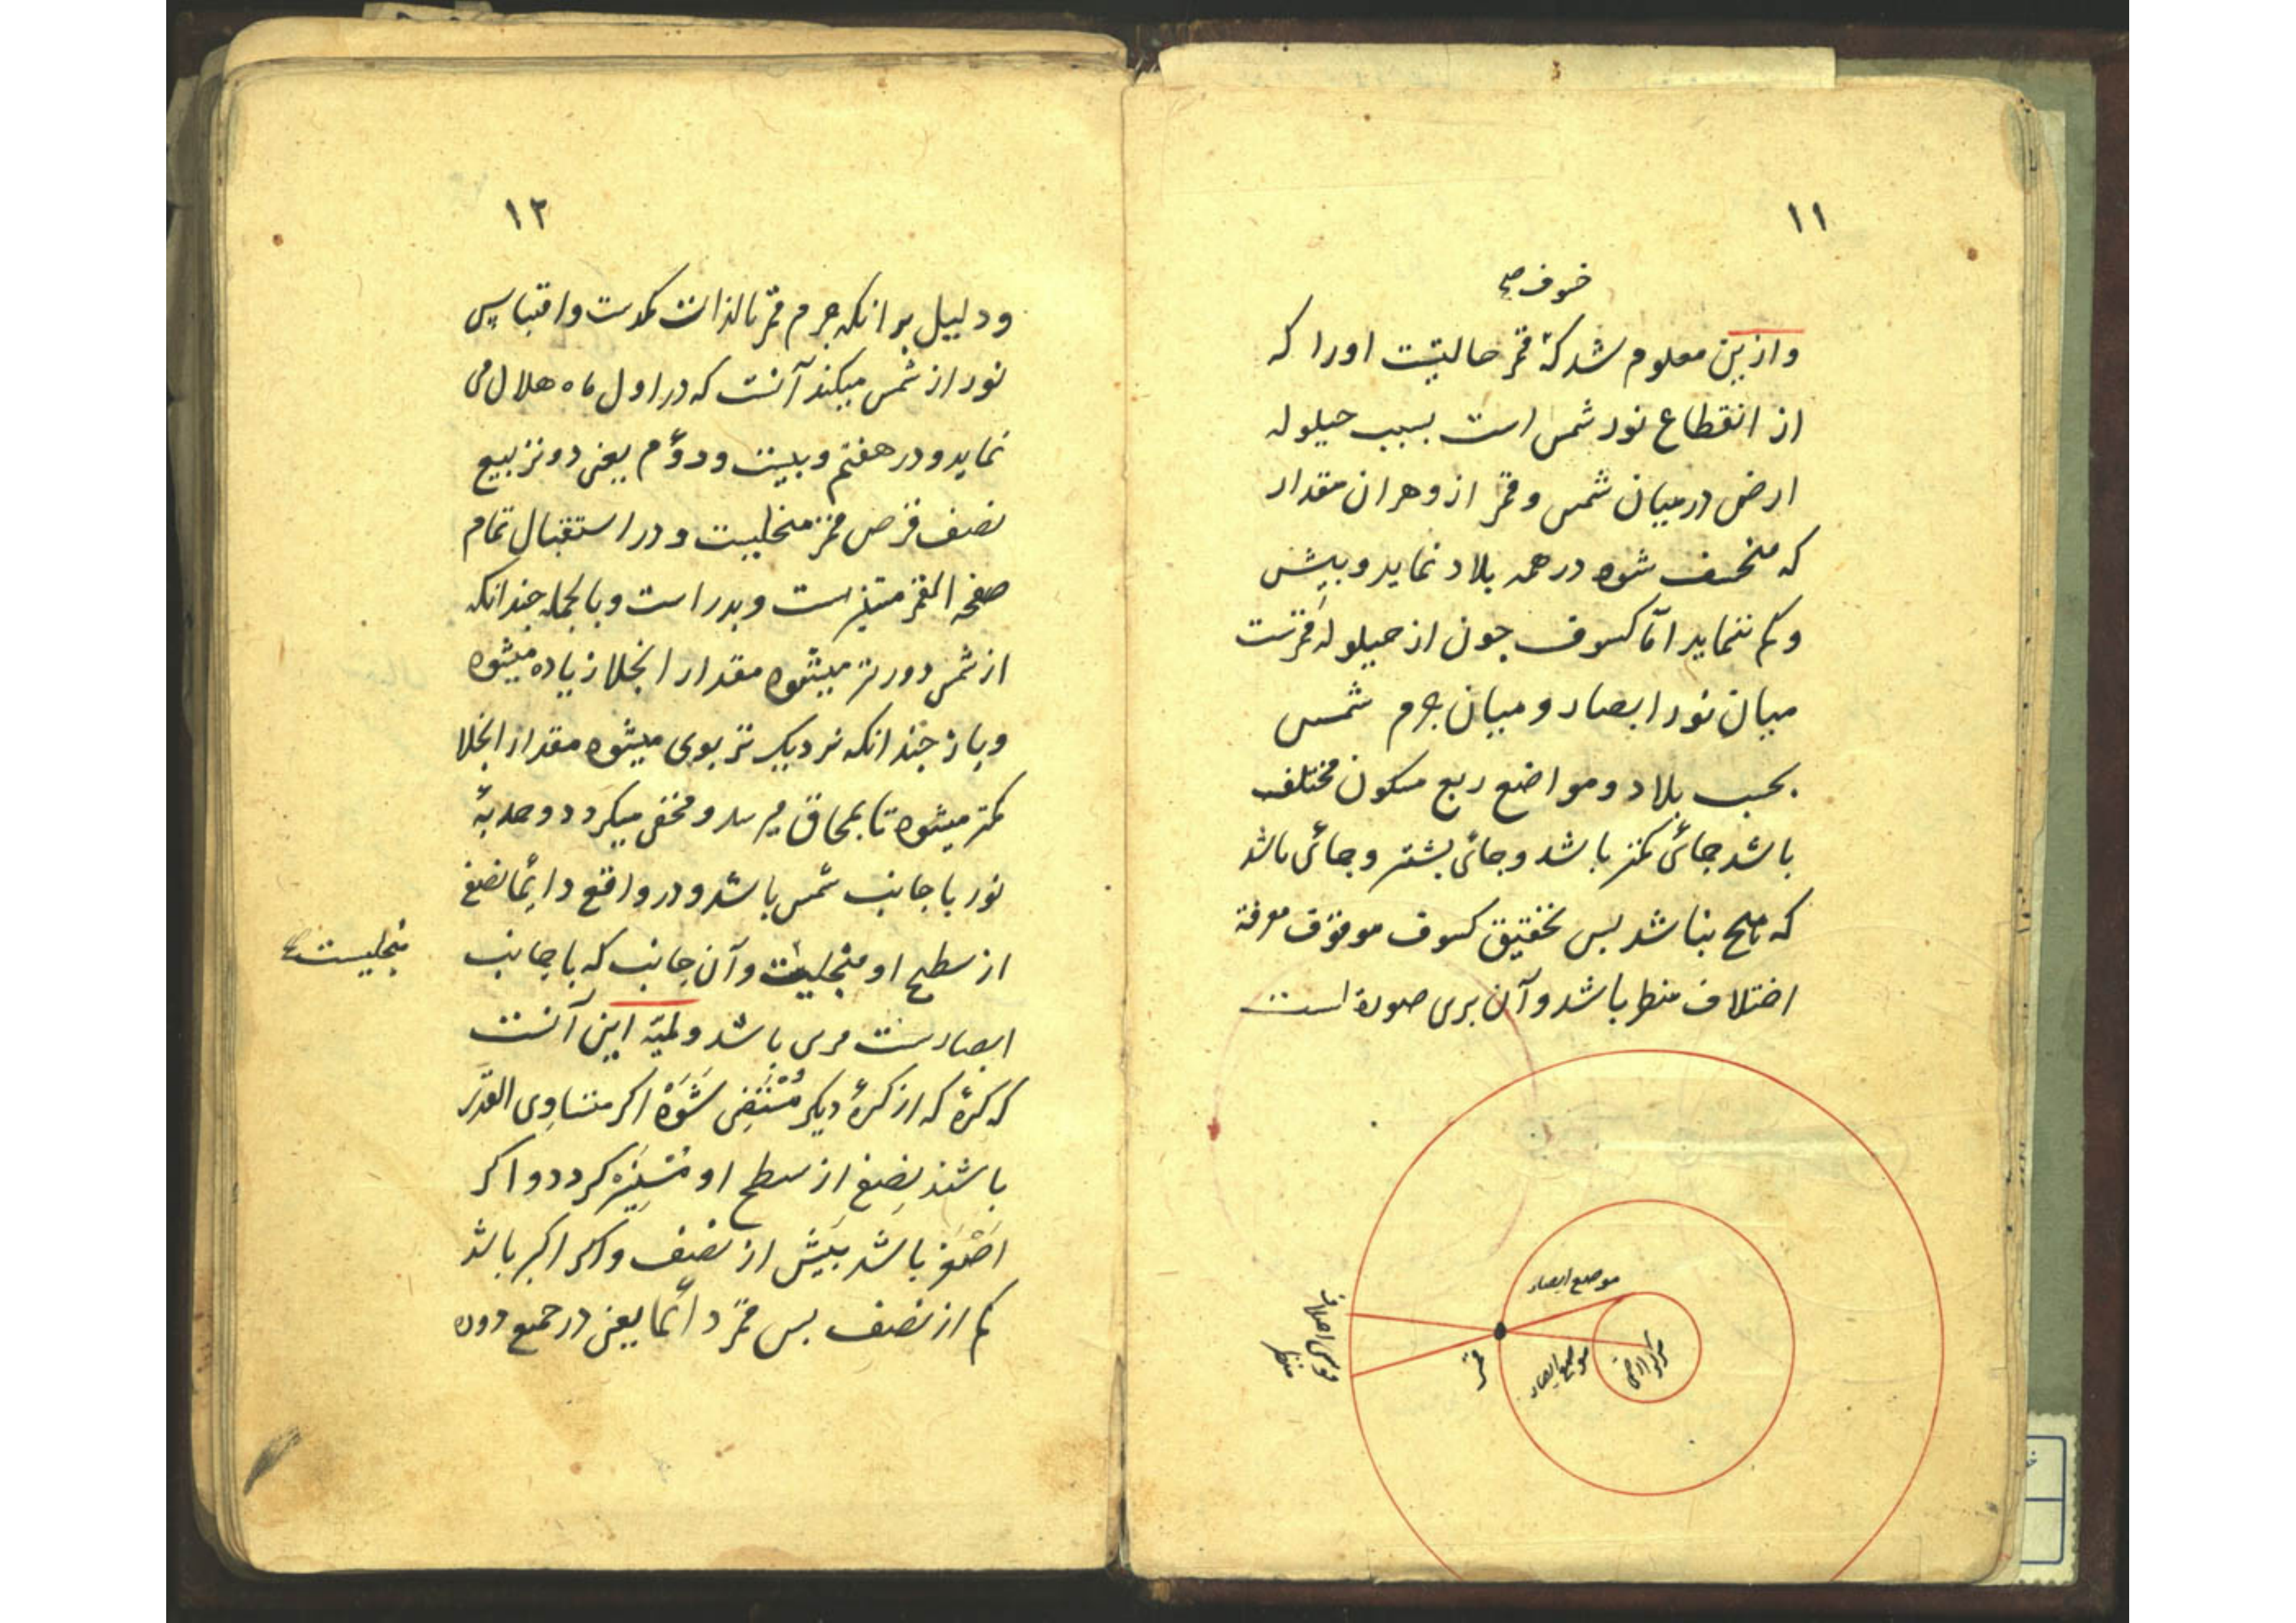 ۱۱
خسوف صح
وازین معلوم شد که قمر حالتیست اورا که
از انقطاع نور شمس است بسبب حیلوله
ارض درمیان شمس و قمر ازوهران مقدار
که منخسف شود درهمه بلاد نماید وبیش
وکم ننماید امّا کسوف چون از حیلولهٔ قمرست
میان نور ابصار و میان جرم شمس
بحسب بلاد و مواضع ربع مسکون مختلف
باشد جائی کمتر باشد وجائی بیشتر وجائی باشد
که نباشد بس تحقیق کسوف موقوف معرفة
اختلاف منظر باشد و آن برین صورة است
موضع ابصار
موضع ابصار
مرکز ارض
قمر
قوس اختلاف
منظر
۱۲
ودلیل بر انکه جرم قمر بالذات کمدست واقتباس
نور از شمس میکند آنست که در اول ماه هلال می
نماید و در هفتم و بیست ودوّم یعنی دو تربیع
نصف قرص قمر منجلیست و در استقبال تمام
صفحه القمر مستنیر است و بدر است و بالجمله چندانکه
از شمس دورتر میشود مقدار انجلا زیاده میشود
و باز چندانکه نزدیک تر بوی میشود مقدار انجلا
کمتر میشود تا بمحاق میرسد و مخفی میکردد و حدبهٔ
نور با جانب شمس باشد و در واقع دائما نصف
از سطح او منجلیست و آن جانب که با جانب
منجلیست صح
ابصارست مری باشد و لمیّه این آنست
که کرهٔ که از کرهٔ دیکر مستضی شود اکر متساوی القدر
باشند نصف از سطح او مستنیر کردد و اکر
اصغر باشد بیش از نصف و اکر اکبر باشد
کم از نصف بس قمر دائما یعنی در جمیع دوره